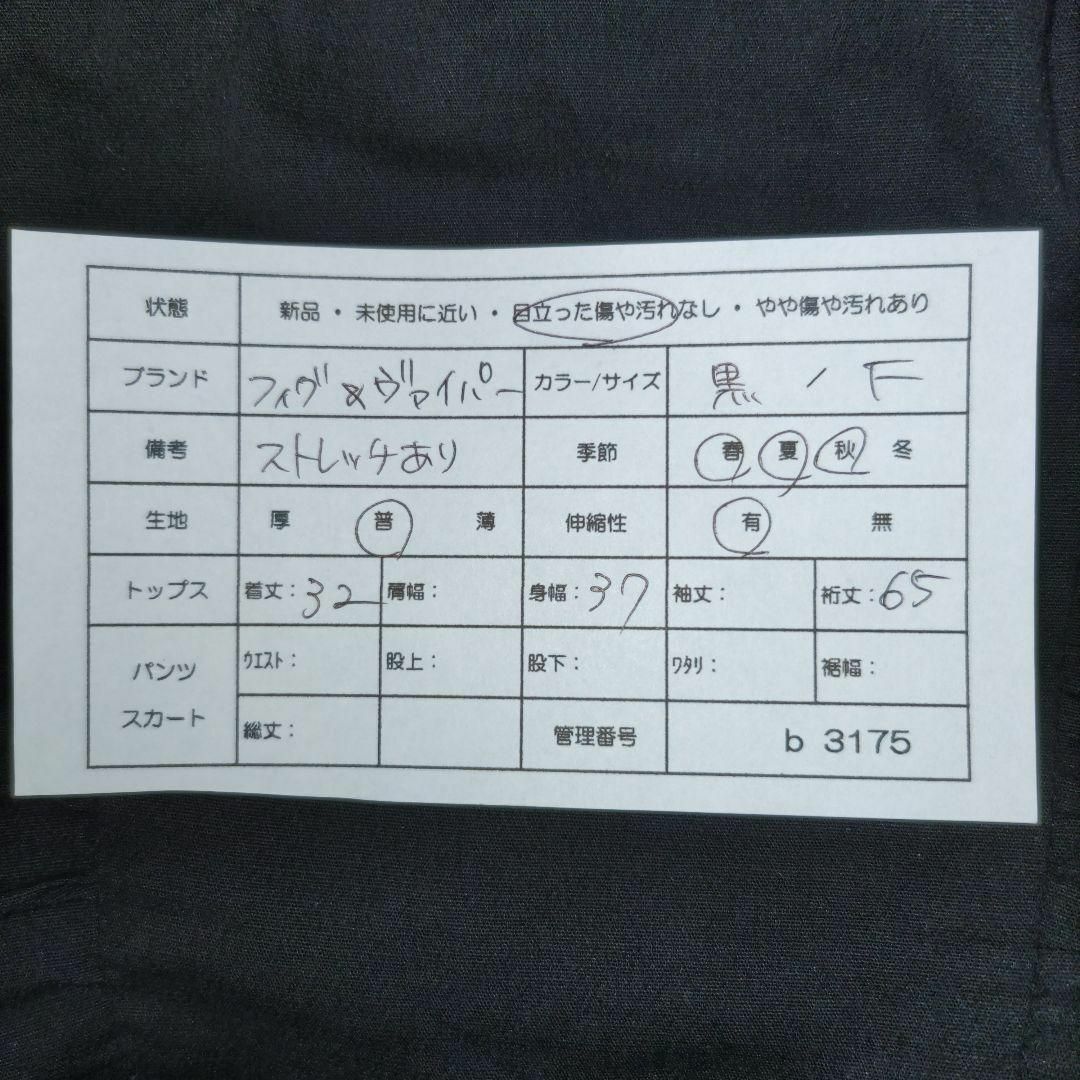 状態 新品 ・ 未使用に近い ・ 目立った傷や汚れなし ・ やや傷や汚れあり
ブランド フィグ&ヴァイパー カラー/サイズ 黒 / F
備考 ストレッチあり 季節 春 夏 秋 冬
生地 厚 普 薄 伸縮性 有 無
トップス 着丈:32 肩幅: 身幅:37 袖丈: 裄丈:65
パンツ ウエスト: 股上: 股下: ワタリ: 裾幅:
スカート 総丈: 管理番号 b 3175